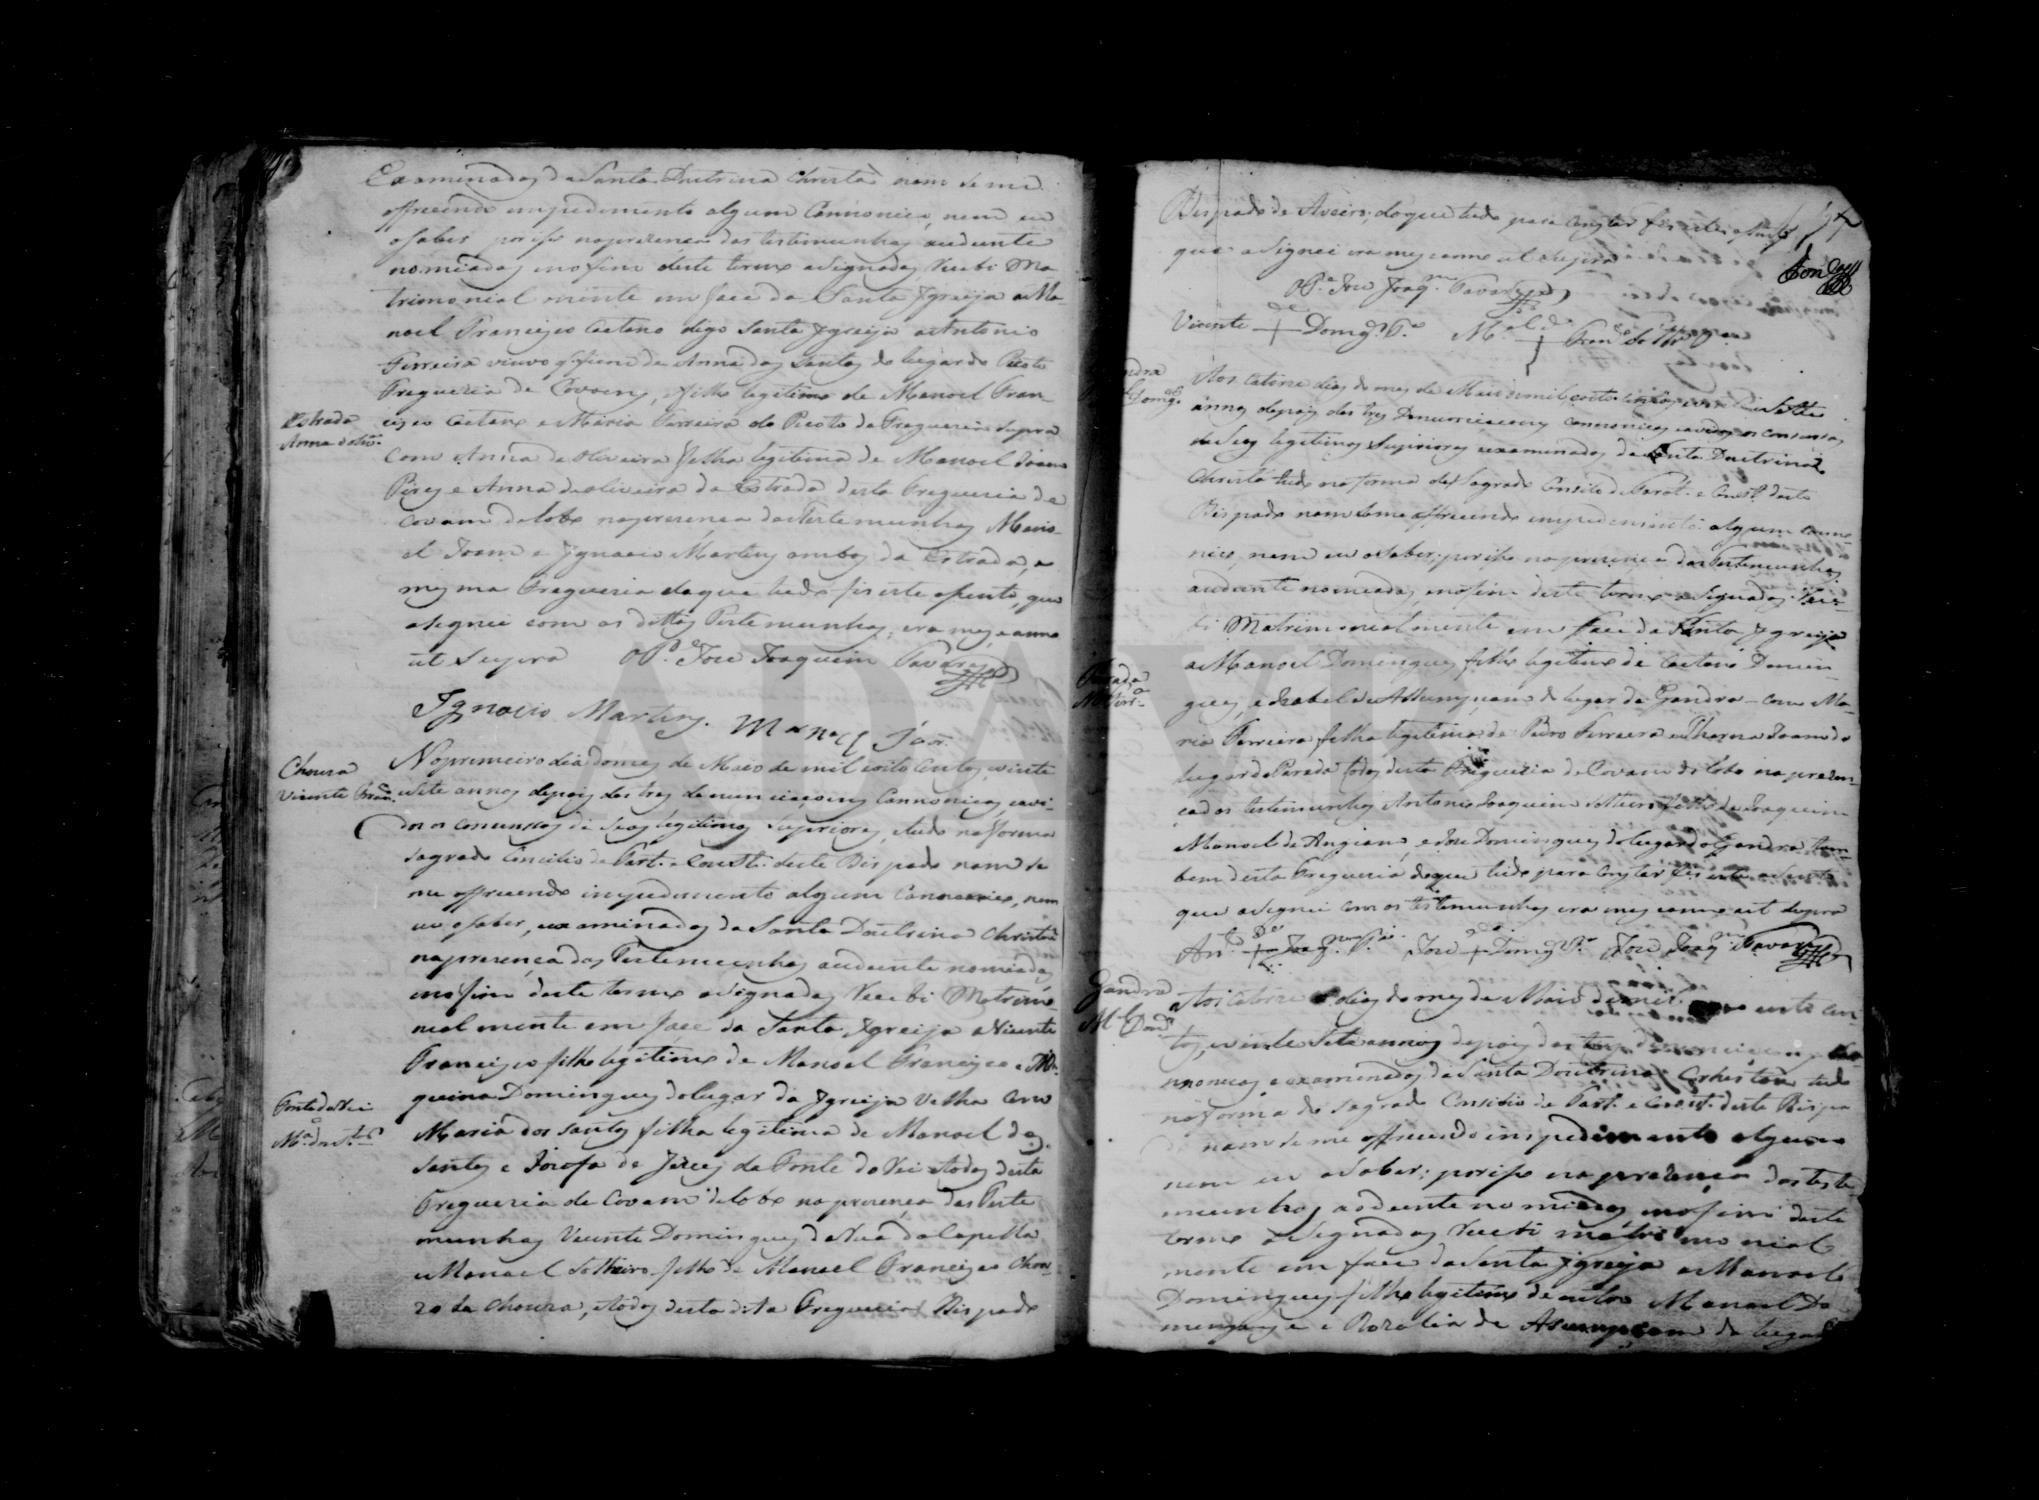 Examinados da Santa Doutrina Christã nam se me
offrecendo impedimento algum Cannonico, nem eu
o saber por isso na prezença das testimunhas audiante
nomiadas no fim deste termo asignadas Recebi Ma-
trimonial mente em face da Santa Igreija a Ma-
noel Francisco Caetano digo Santa Igreija a Antonio
Ferreira viuvo q ficou de Anna dos Santos do lugar do Picoto
Freguezia de Covoens, filho legitimo de Manoel Fran-
Estrada
Anna d oliv.ª
cisco Caetano e Maria Ferreira do Picoto da Freguezia supra
com Anna de oliveira filha legitima de Manoel Joam
Pires e Anna de oliveira da Estrada desta Freguezia de
Covam do lobo na prezença das Testemunhas Mano-
el Joam e Ignacio Martins ambos da Estrada, a
mesma Freguezia do que tudo fis este asento, que
asignei com as dittas Testemunhas, era mes e anno
ut supra O P.e Joze Joaquim Tavares
Ignacio Martins. Manoel Joaõ
Choura
Vicente Fran.co
No primeiro dia do mes de Maio de mil oito centos e vinte
e sete annos depois das tres denunciacoens Cannonicas, avi-
dos os consensos de seos legitimos Superiores, tudo na forma
sagrado Concilio de Trent. e Const. deste Bispado nam se
me offrecendo impedimento algum Cannonico, nem
eu o saber, examinados da Santa Doutrina Christã
na prezença das Testemunhas audiante nomiadas
no fim deste termo asignadas Recebi Matrimo-
nial mente em face da Santa Igreija a Vicente
Francisco filho legitimo de Manoel Francisco e
quina Domingues do lugar da Igreija Velha com
Ponte do Vei
M.ª dos St.os
Maria dos Santos filha legitima de Manoel dos
Santos e Jozefa de Jezus da Ponte do Vei e todos desta
Freguezia de Covam do lobo na prezença das Teste
munhas Vicente Domingues da Rua da Capella
e Manoel Solteiro filho de Manoel Francisco Chou-
ra da Choura, e todos desta dita Freguezia Bispado
Bispado de Aveiro; do que tudo para constar fis este asento
que asignei era mes anno ut supra
O P.e Joze Joaq.m Tavares
Vicente de + Domg.s T.ª M.el de + Fran.co Solt.ro
Gandra
M.el Domg.s
Aos catorze dias do mes de Maio de mil, oito centos e vinte e Sette
annos depois das tres Denunciacoens cannonicas, avidos os consensos
de seos legitimos Superiores examinados da Santa Doutrina
Christã tudo na forma do Sagrado Concilio de Trent. e Const. deste
Bispado nam se me offrecendo impedimento algum canno-
nico, nem eu o saber; por isso na prezença das Testemunhas
audiante nomeadas, no fim deste termo asignadas Rece-
bi Matrimonial mente em face da Santa Igreija
a Manoel Domingues filho legitimo de Caetano Domin-
Parada
M.ª Ferr.ª
gues, e Izabel de Assumpçam do lugar da Gandra – com Ma-
ria Ferreira filha legitima de Pedro Ferreira e Thereza Joam do
lugar da Parada todos desta Freguezia de Covam do lobo na prezen-
ça das testemunhas Antonio Joaquim Solteiro filho de Joaquim
Manoel de Angiam, e Joze Domingues do lugar da Gandra tam-
bem desta Freguezia do que tudo para constar fis este asento
que asignei com as testemunhas era mes anno ut supra
An.to de + Joaq.m T.ª Joze de + Domg.s T.ª Joze Joaq.m Tavares
Gandra
M.el Dom.s
Aos catorze dias do mes de Maio de mil oito cen-
tos, e vinte Sete annos depois das tres denunciacoens Can-
nonicas, e examinados da Santa Doutrina Christam tudo
na forma do Sagrado Consilio de Trent. e Const. deste Bispa
do nam se me offrecendo impedimento algum
nem eu o saber; por isso na prezença das teste
munhas audiante nomiadas no fim deste
termo asignadas Recebi matrimonial
mente em face da Santa Igreija a Manoel
Domingues filho legitimo de outro Manoel Do
mingues e Rozalia de Asumpçam do lugar
ADAVR